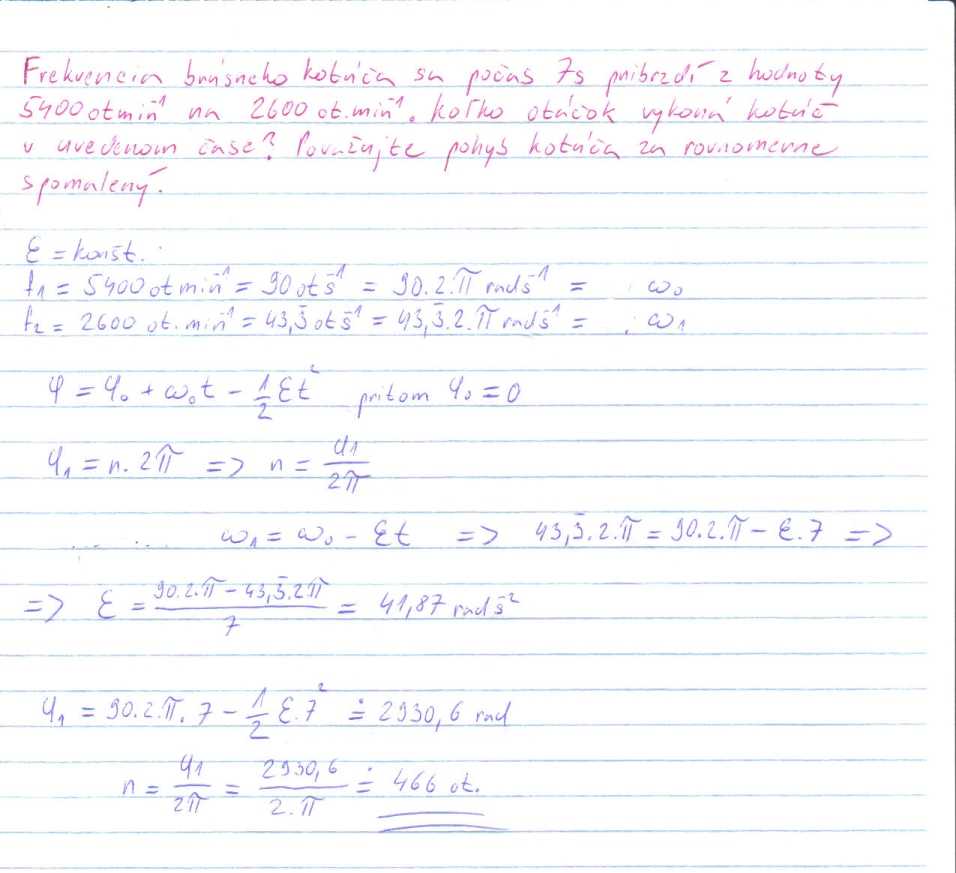 Frekvencia brúsneho kotúča sa počas 7s pribrzdí z hodnoty
5400 ot min⁻¹ na 2600 ot.min⁻¹. Koľko otáčok vykoná kotúč
v uvedenom čase? Považujte pohyb kotúča za rovnomerne
spomalený.
ε = konšt.
f₁ = 5400 ot min⁻¹ = 90 ot s⁻¹ = 90.2.π rad s⁻¹ = ω₀
f₂ = 2600 ot. min⁻¹ = 43,3̄ ot s⁻¹ = 43,3̄.2.π rad s⁻¹ = ω₁
φ = φ₀ + ω₀t - 1/2 εt² pritom φ₀ = 0
φ₁ = n. 2π => n = φ₁/2π
ω₁ = ω₀ - εt => 43,3̄.2.π = 90.2.π - ε.7 =>
=> ε = (90.2.π - 43,3̄.2π)/7 = 41,87 rad s⁻²
φ₁ = 90.2.π.7 - 1/2 ε.7² ≐ 2930,6 rad
n = φ₁/2π = 2930,6/2.π ≐ 466 ot.